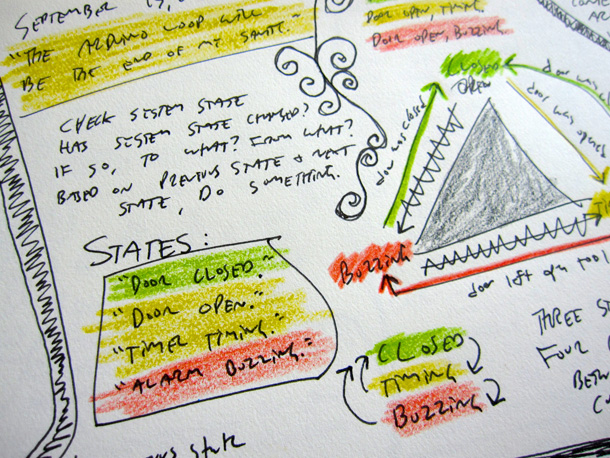 SEPTEMBER 15,
"THE ARDUINO LOOP WILL
BE THE END OF MY SANITY."
CHECK SYSTEM STATE
HAS SYSTEM STATE CHANGED?
IF SO, TO WHAT? FROM WHAT?
BASED ON PREVIOUS STATE & NEXT
STATE, DO SOMETHING.
STATES:
"DOOR CLOSED."
"DOOR OPEN."
"TIMER TIMING."
"ALARM BUZZING."
DOOR OPEN, TIMING
DOOR OPEN, BUZZING
CLOSED
OPEN
door was closed
door was
door was opened
BUZZING
door left open too l
CLOSED
TIMING
BUZZING
THREE S
FOUR
BETW